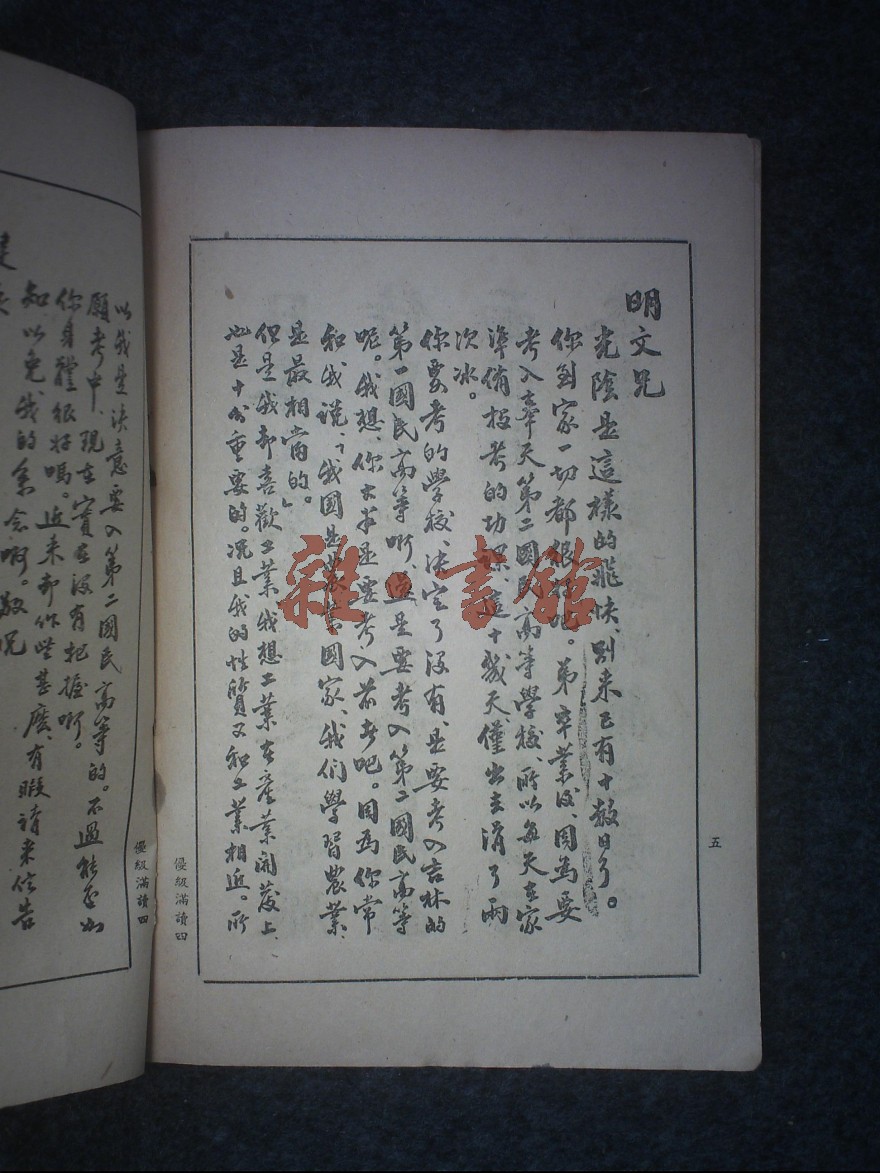 明文兄
光陰是這樣的飛快、別來已有十數日了。
你到家一切都很好吧。弟卒業後、因為要
考入奉天第二國民高等學校、所以每天在家
準備投考的功課、這十幾天、僅出去滑了兩
次冰。
你要考的學校、決定了沒有、是要考入吉林的
第一國民高等啊、還是要考入第二國民高等
呢。我想、你大半是要考入前者吧。因為你常
和我說、「我國是農業國家、我们學習農業、
是最相當的。」
但是我却喜歡工業、我想工業在產業開發上、
也是十分重要的。况且我的性質又和工業相近。所
五
優級滿讀四
以我是決意要入第二國民高等的。不過能否如
願考中、現在實在沒有把握啊。
你身體很好嗎。近來却作些甚麽、有暇請來信告
知以免我的念啊。敬祝
優級滿讀四
雜書館